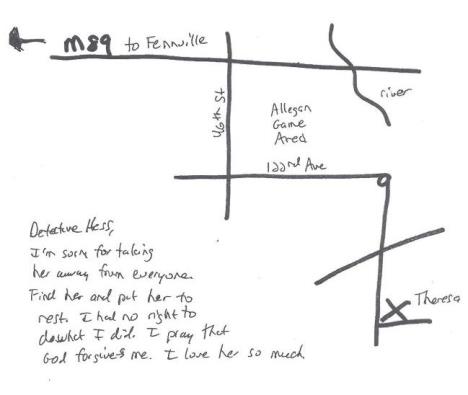 M89 to Fennville
46th St
river
Allegan
Game
Area
122rd Ave
Theresa
Detective Hess,
I'm sorry for taking
her away from everyone.
Find her and put her to
rest. I had no right to
do what I did. I pray that
God forgives me. I love her so much